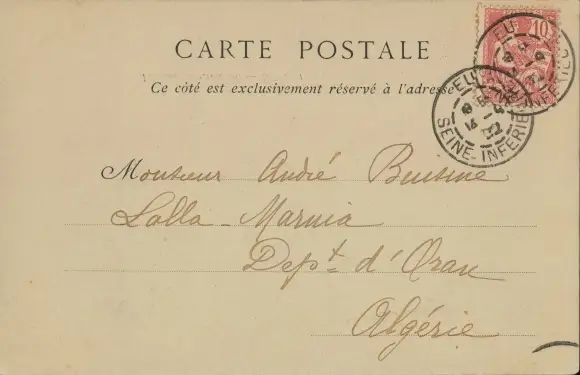 CARTE POSTALE
Ce côté est exclusivement réservé à l'adresse
10
EU
SEINE-INFERIE
EU
INFERIE
Monsieur André Buisine
Lalla-Marnia
Dépt d'Oran
Algérie